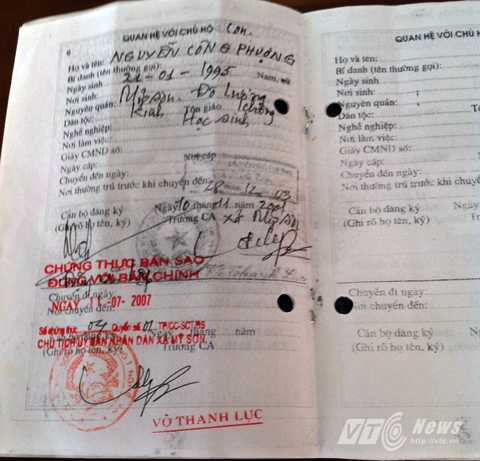 6 QUAN HỆ VỚI CHỦ HỘ Con
Họ và tên: NGUYỄN CÔNG PHƯỢNG
Bí danh (tên thường gọi):
Ngày sinh 21-01-1995 Nam, nữ
Nơi sinh: Mỹ Sơn. Đô Lương
Nguyên quán:
Dân tộc: Kinh Tôn giáo không
Nghề nghiệp: Học sinh
Nơi làm việc:
Giấy CMND số: Nơi cấp
Ngày cấp:
Chuyển đến ngày:
Nơi thường trú trước khi chuyển đến:
Ngày 10 tháng 11 năm 2001
Cán bộ đăng ký Trưởng CA xã Mỹ Sơn
(Ghi rõ họ tên, ký)
CHỨNG THỰC BẢN SAO
ĐÚNG VỚI BẢN CHÍNH
Chuyển đi ngày:
NGÀY 11-07-2007
Nơi chuyển đến:
Số chứng thực 03 Quyển số 01 TP/CC-SCT/BS
tháng năm
CHỦ TỊCH ỦY BAN NHÂN DÂN XÃ MỸ SƠN
Trưởng CA
(Ghi rõ họ tên, ký)
VÕ THANH LỤC
QUAN HỆ VỚI CHỦ
Họ và tên:
Bí danh (tên thường gọi):
Ngày sinh
Nơi sinh:
Nguyên quán:
Dân tộc: Tôn
Nghề nghiệp:
Nơi làm việc:
Giấy CMND số:
Ngày cấp:
Chuyển đến ngày:
Nơi thường trú trước khi chuyển
Ngày
Cán bộ đăng ký
(Ghi rõ họ tên, ký)
Chuyển đi ngày:
Nơi chuyển đến:
Ngày
Cán bộ đăng ký
(Ghi rõ họ tên, ký)
VTC News
http://vtc.vn